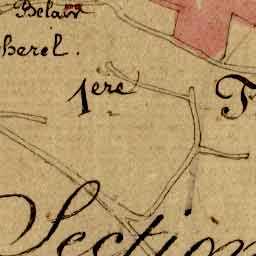 Belair
herel.
1ere
Section